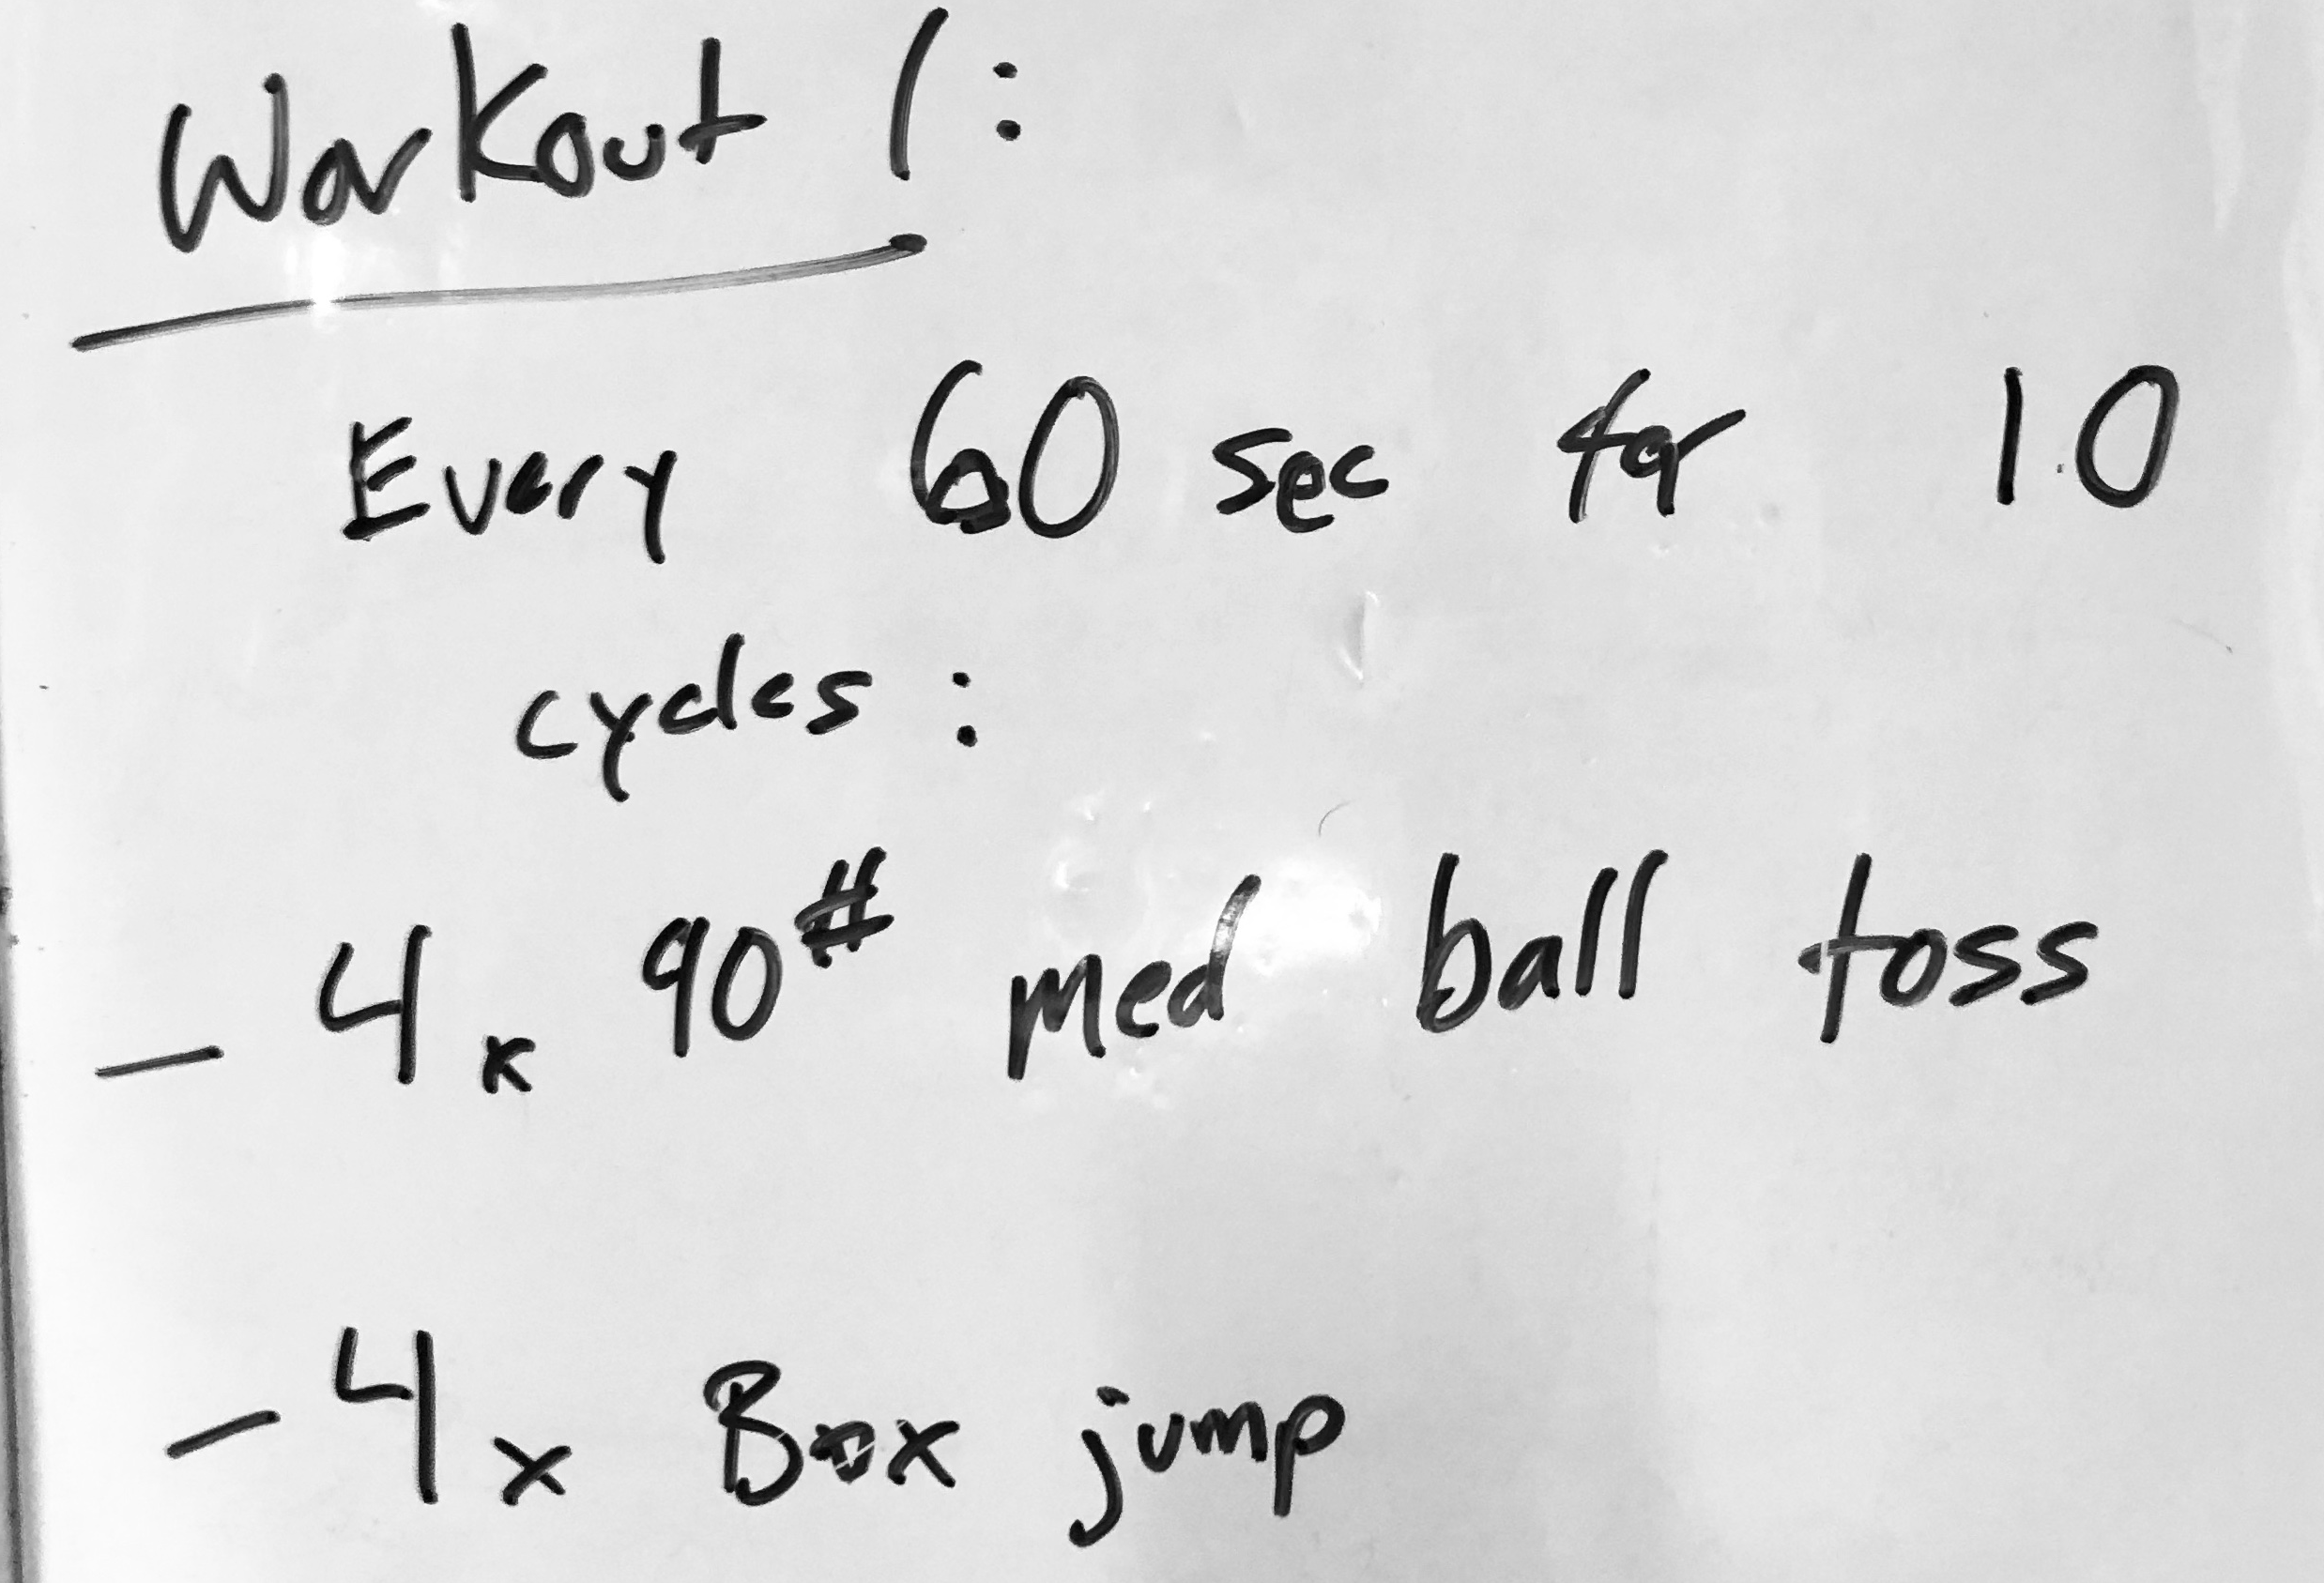 Workout 1:
Every 60 sec for 10
cycles:
- 4x 90# med ball toss
- 4x Box jump